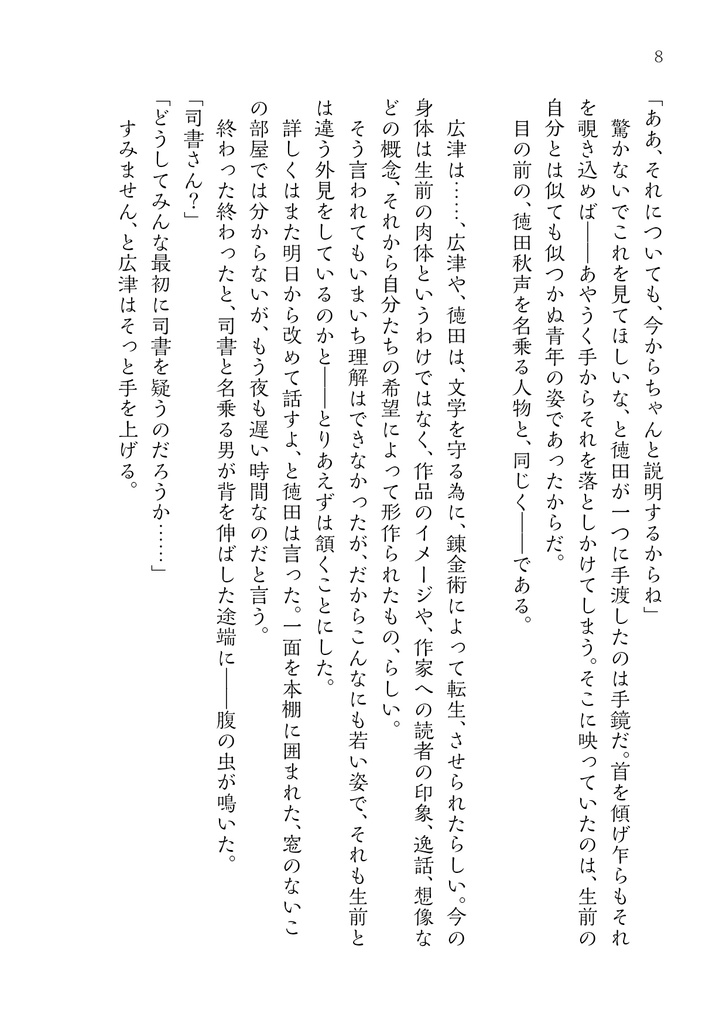 8
「ああ、それについても、今からちゃんと説明するからね」
驚かないでこれを見てほしいな、と徳田が一つに手渡したのは手鏡だ。首を傾げ乍らもそれ
を覗き込めば――あやうく手からそれを落としかけてしまう。そこに映っていたのは、生前の
自分とは似ても似つかぬ青年の姿であったからだ。
目の前の、徳田秋声を名乗る人物と、同じく――である。
広津は……、広津や、徳田は、文学を守る為に、錬金術によって転生、させられたらしい。今の
身体は生前の肉体というわけではなく、作品のイメージや、作家への読者の印象、逸話、想像な
どの概念、それから自分たちの希望によって形作られたもの、らしい。
そう言われてもいまいち理解はできなかったが、だからこんなにも若い姿で、それも生前と
は違う外見をしているのかと――とりあえずは頷くことにした。
詳しくはまた明日から改めて話すよ、と徳田は言った。一面を本棚に囲まれた、窓のないこ
の部屋では分からないが、もう夜も遅い時間なのだと言う。
終わった終わったと、司書と名乗る男が背を伸ばした途端に――腹の虫が鳴いた。
「司書さん？」
「どうしてみんな最初に司書を疑うのだろうか……」
すみません、と広津はそっと手を上げる。